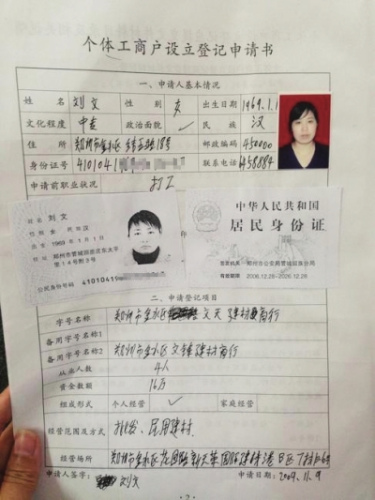 个体工商户设立登记申请书
一、申请人基本情况
姓 名 刘文 性 别 女 出生日期 1969.1.1
文化程度 中专 政治面貌 民 族 汉
住 所 郑州市金水区 18号 邮政编码 450000
身份证号 410104 联系电话
申请前职业状况 打工
姓 名 刘 文
民 族 汉
1969 年 1 月 1 日
郑州市管城回族区东太平
第14号附3号
公民身份号码 4101041
中华人民共和国
居民身份证
签发机关 郑州市公安局管城回族分局
有效期限 2006.12.26-2026.12.26
二、申请登记项目
字号名称 郑州市金水区 文天建材商行
备用字号名称1
备用字号名称2 郑州市金水区文锋建材商行
从业人数 4人
资金数额 16万
组成形式 个人经营 ✓ 家庭经营
经营范围及方式 批发、民用建材
经营场所 郑州市金水区花园路 国际建材港B区
申请人签字: 刘文 申请日期: 2009.11.9